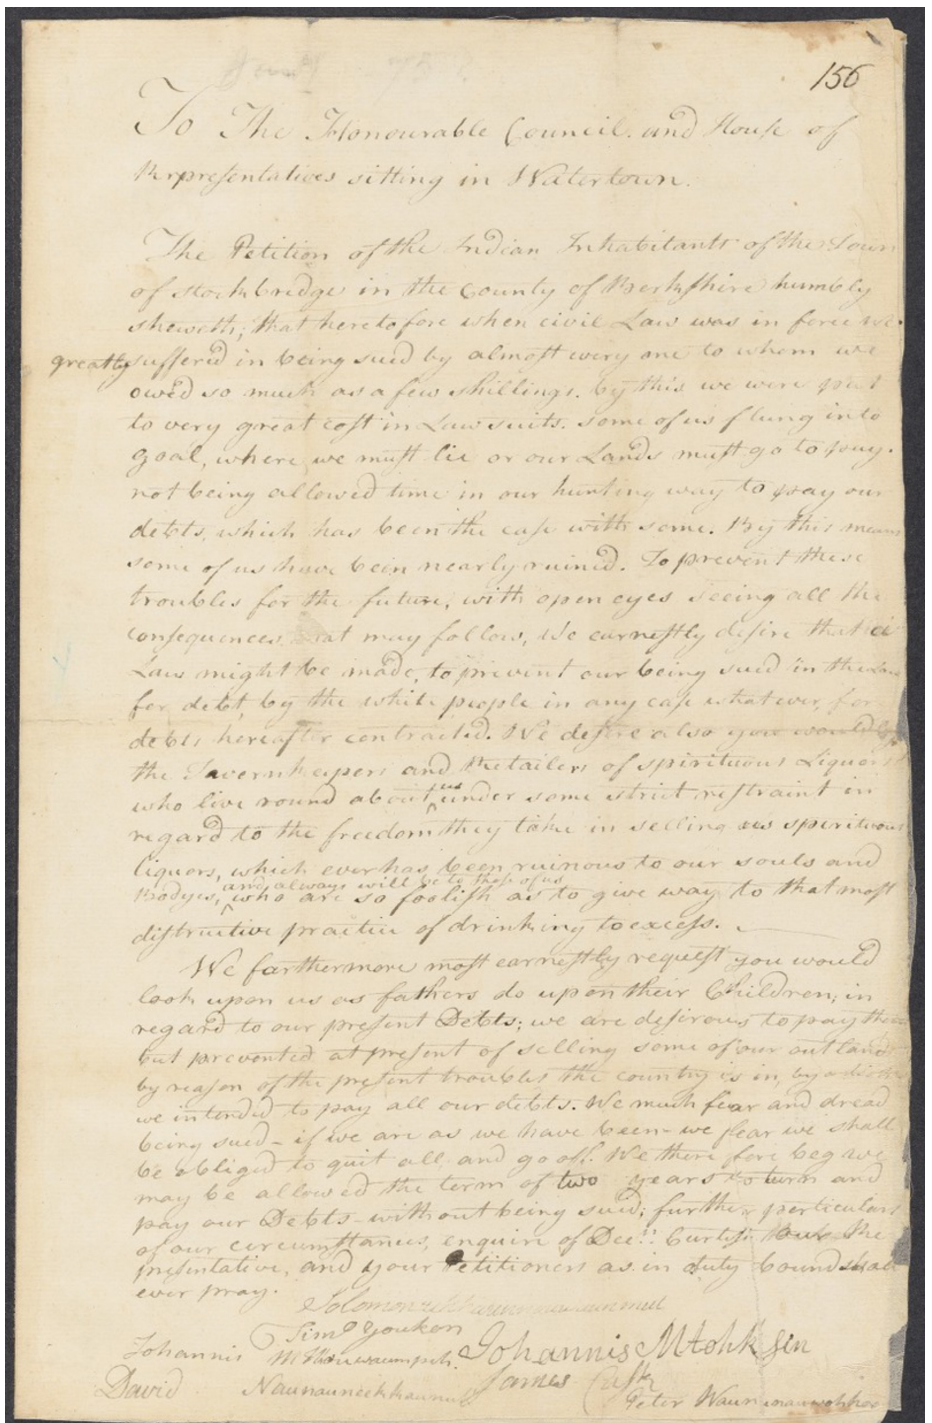 156
To The Honourable Council and House of
Representatives sitting in Watertown.
The Petition of the Indian Inhabitants of the Town
of Stockbridge in the County of Berkshire humbly
sheweth; that heretofore when civil Law was in force we
greatly suffered in being sued by almost every one to whom we
owed so much as a few shillings. by this we were put
to very great cost in Law suits. some of us flung into
goal, where we must lie or our Lands must go to pay.
not being allowed time in our hunting way to pay our
debts, which has been the case with some. By this means
some of us have been nearly ruined. To prevent these
troubles for the future, with open eyes seeing all the
consequences that may follow, We earnestly desire that a
Law might be made, to prevent our being sued in the Law
for debt, by the white people in any case whatever, for
debts hereafter contracted. We desire also you would
the Tavernkeepers and Retailers of spirituous Liquors
who live round about us under some strict restraint in
regard to the freedom they take in selling us spirituous
liquors, which ever has been ruinous to our souls and
Bodyes, and always will be to those of us who are so foolish as to give way to that most
distructive practice of drinking to excess.
We farthermore most earnestly request you would
look upon us as fathers do upon their Children; in
regard to our present Debts; we are desirous to pay them
but prevented at present of selling some of our out lands
by reason of the present troubles the country is in, by
we intended to pay all our debts. We much fear and dread
being sued - if we are as we have been - we fear we shall
be obliged to quit all and go off. We therefore beg we
may be allowed the term of two years to turn and
pay our Debts - without being sued; further particulars
of our circumstances, enquire of Deen Curtiss the
presentative, and your Petitioners as in duty bound shall
ever pray.
Solomon
Timo Youkon
Johannis Mtohksin
Johannis
James Cask
David Naunauneekkaunuk
Peter